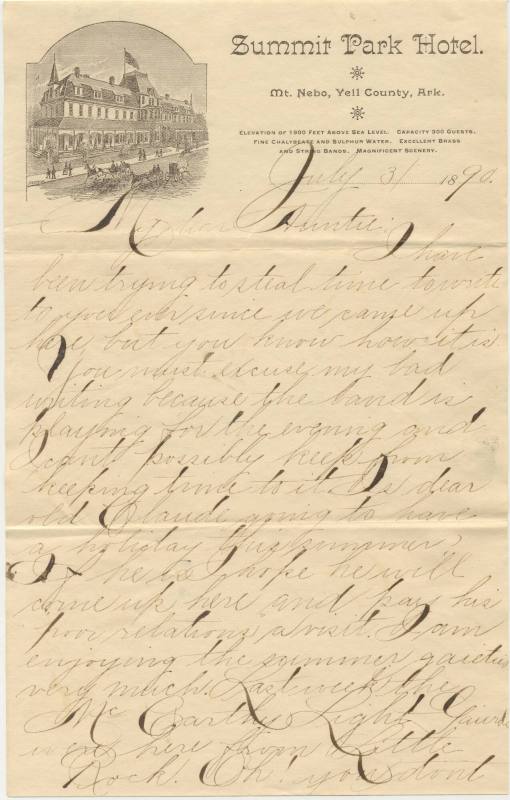 Summit Park Hotel.
Mt. Nebo, Yell County, Ark.
Elevation of 1900 Feet Above Sea Level. Capacity 300 Guests.
Fine Chalybeate and Sulphur Water. Excellent Brass
and String Bands. Magnificent Scenery.
July 31 1890.
My dear Auntie:
I have
been trying to steal time to write
to you ever since we came up
here, but you know how it is
You must excuse my bad
writing because the band is
playing for the evening and
I can't possibly keep from
keeping time to it. Is dear
old Claude going to have
a holiday this summer,
If he is I hope he will
come up here and pay his
poor relations a visit. I am
enjoying the summer gaieties
very much. Last week the
McCarthy Light Guards
were here from Little
Rock. Oh! you don't